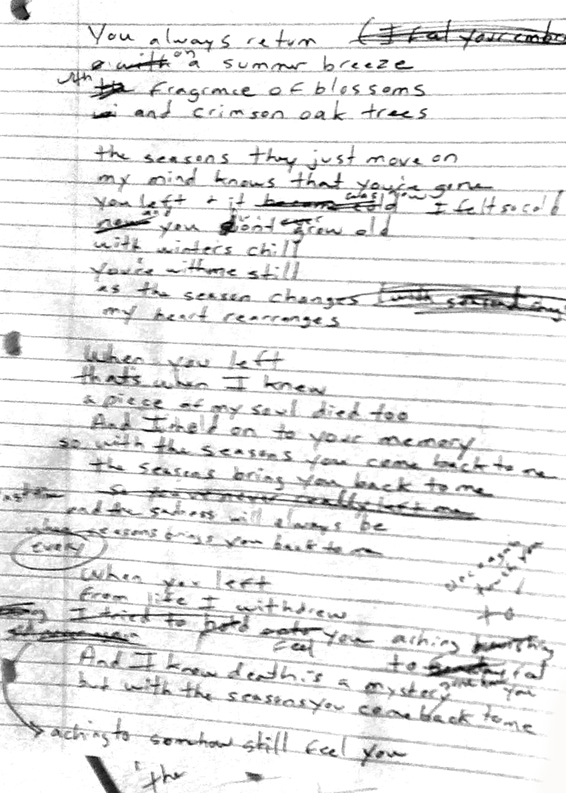 You always return (I feel your embra
with on a summer breeze
with the fragrance of blossoms
and crimson oak trees
the seasons they just move on
my mind knows that you're gone
you left + it became cold I felt so cold
now and you don't ever grow old
with winters chill
you're with me still
as the season changes
my heart rearranges
When you left
thats when I knew
a piece of my soul died too
And I held on to your memory
so with the seasons you come back to me
the seasons bring you back to me
so you never really left me
and the sadness will always be
when seasons brings you back to me
every
When you left
from life I withdrew
I tried to hold onto you aching
feel
to
And I know death is a mystery
but with the seasons you come back to me
aching to somhow still feel you
the